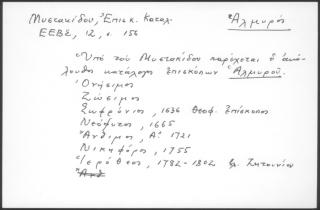 Μυστακίδου, Ἐπισκ. Καταλ. Ἁλμυρός
ΕΕΒΣ, 12, σ. 156
Ὑπὸ τοῦ Μυστακίδου παρέχεται ὁ ἀκό-
λουθος κατάλογος ἐπισκόπων Ἁλμυροῦ.
Ὀνήσιμος
Ζώσιμος
Σωφρόνιος, 1636 Θεοφ. Ἐπίσκοπος
Νεόφυτος, 1665
Ἄνθιμος, Α' 1721
Νικηφόρος, 1755
Ἱερόθεος, 1782-1802 Ζητουνίου